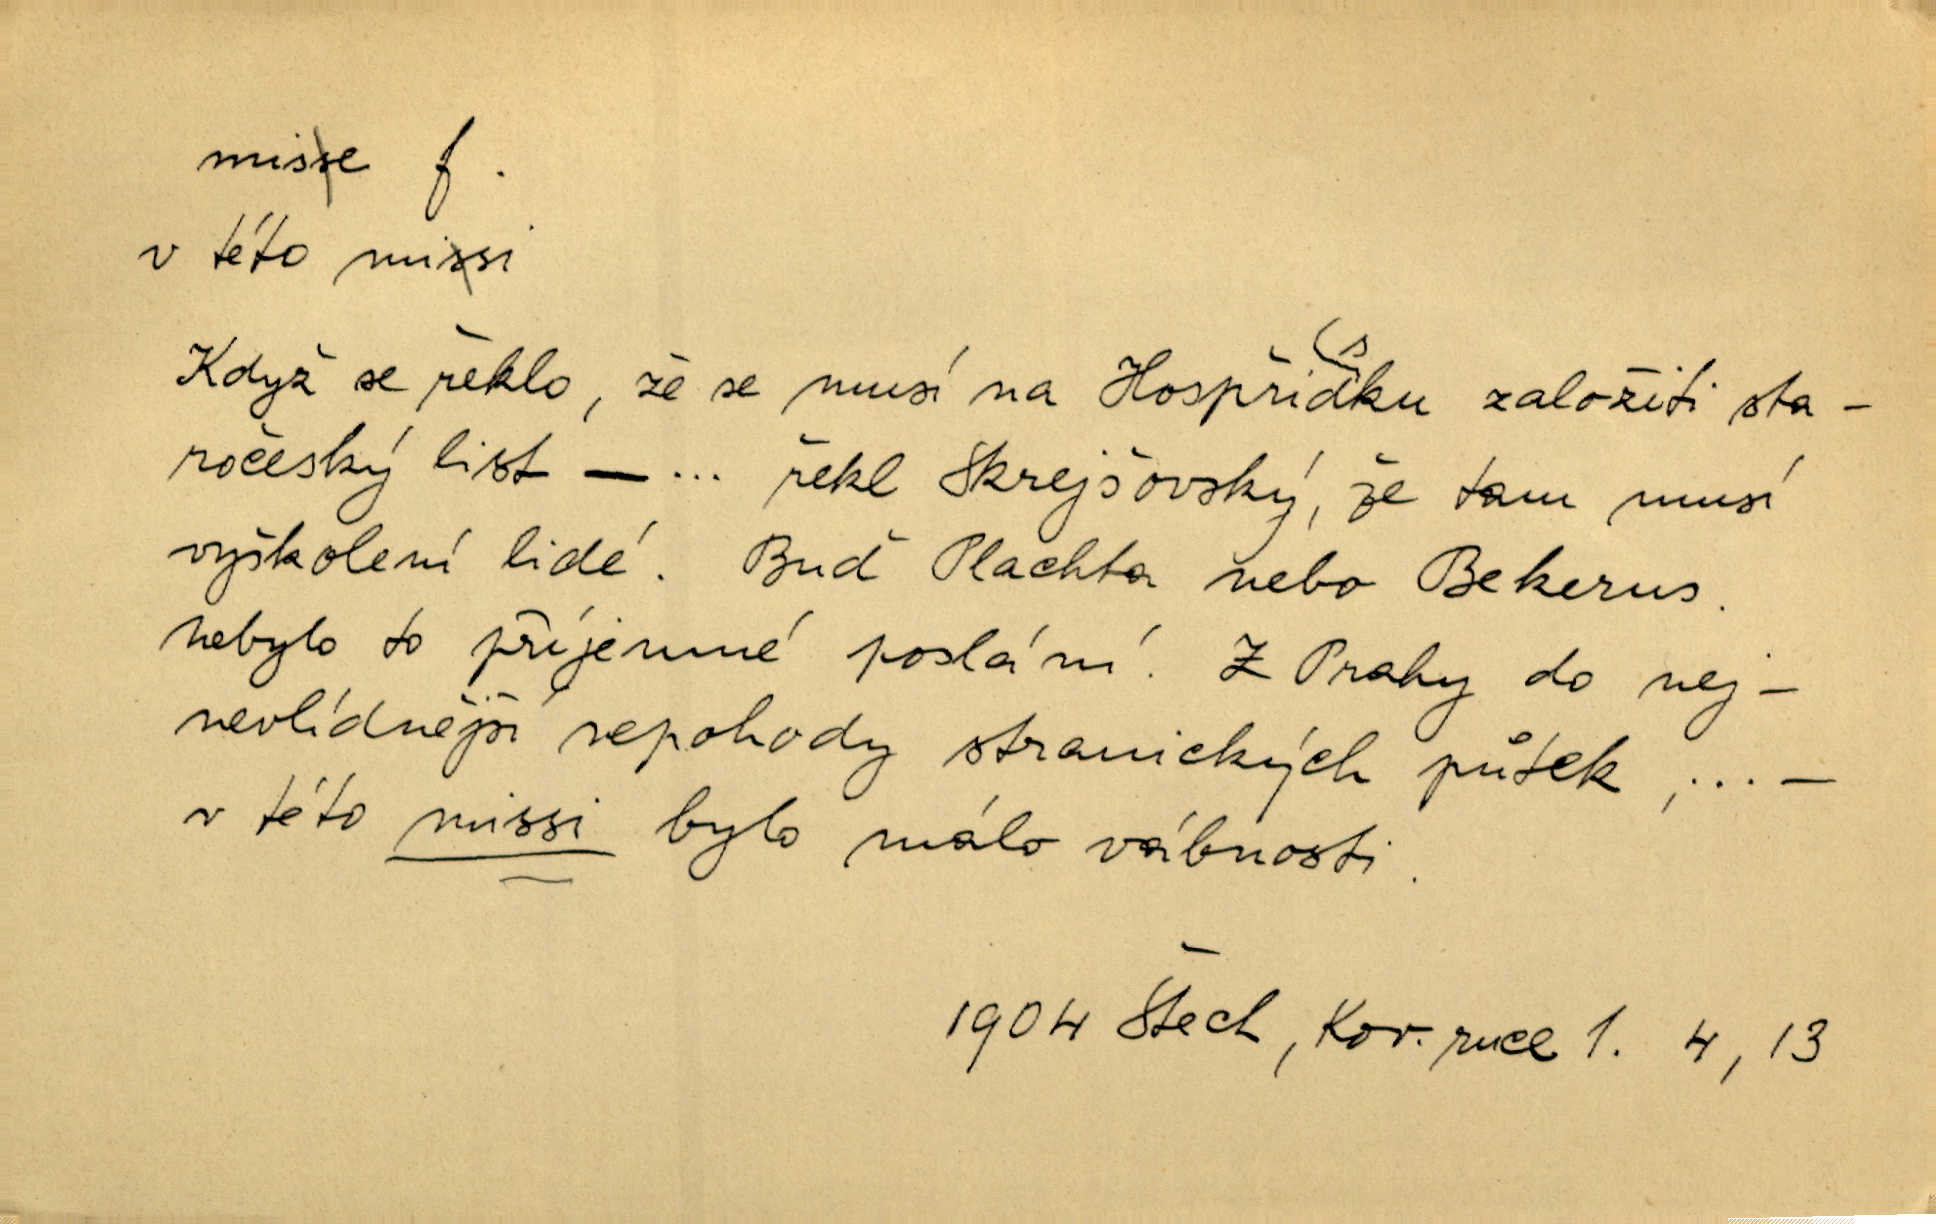 misse f.
v této missi
Když se řeklo, že se musí na Hospřidsku založiti sta-
ročeský list — ... řekl Skrejšovský, že tam musí
vyškolení lidé. Buď Plachta nebo Bekerus.
nebylo to příjemné poslání. Z Prahy do nej-
nevlídnější nepohody stranických půtek, ... —
v této missi bylo málo vábnosti.
1904 Štech, Kov. ruce 1. 4, 13